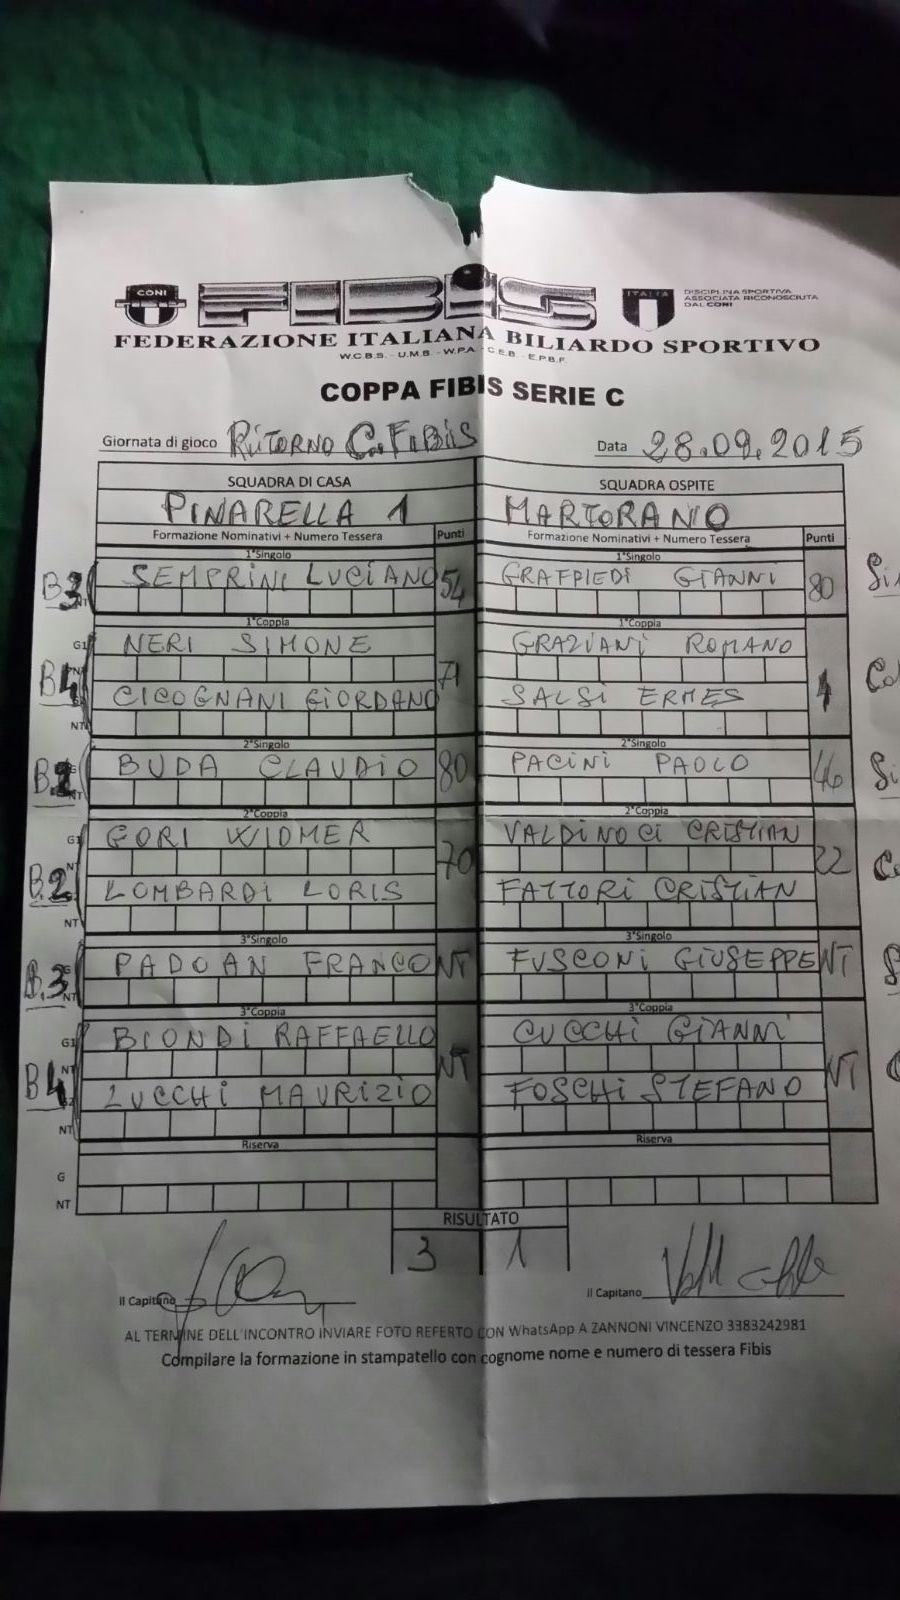 CONI FIBiS ITALIA DISCIPLINA SPORTIVA
ASSOCIATA RICONOSCIUTA
DAL CONI
FEDERAZIONE ITALIANA BILIARDO SPORTIVO
W.C.B.S. - U.M.B. - W.P.A. - C.E.B. - E.P.B.F.
COPPA FIBIS SERIE C
Giornata di gioco RiTORNO C.FIBiS Data 28.09.2015
SQUADRA DI CASA SQUADRA OSPITE
PINARELLA 1 MARTORANO
Formazione Nominativi + Numero Tessera Punti Formazione Nominativi + Numero Tessera Punti
1°Singolo 1°Singolo
B3 SEMPRINI LUCiANO 54 GRAFFIEDi GIANNI 80
NT
1°Coppia 1°Coppia
G1 NERI SIMONE GRAZIANi ROMANO
B4 71 4
CICOGNANI GiORDANO SALSi ERMES
NT
2°Singolo 2°Singolo
BUDA CLAUDiO 80 PACiNi PAOLO 46
NT
2°Coppia 2°Coppia
G1 GORI WIDMER VALDiNOCi CRiSTiAN
NT 70 22
B.2 LOMBARDi LORIS FATTORi CRiSTiAN
NT
3°Singolo 3°Singolo
B.3 PADOAN FRANCO NT FUSCONi GiUSEPPE NT
NT
3°Coppia 3°Coppia
G1 BIONDi RAFFAELLO CUCCHi GIANNi
NT NT NT
B4 LUCCHi MAURiZiO FOSCHi STEFANO
NT
Riserva Riserva
G
NT
RISULTATO
3 1
Il Capitano Il Capitano
AL TERMINE DELL'INCONTRO INVIARE FOTO REFERTO CON WhatsApp A ZANNONI VINCENZO 3383242981
Compilare la formazione in stampatello con cognome nome e numero di tessera Fibis